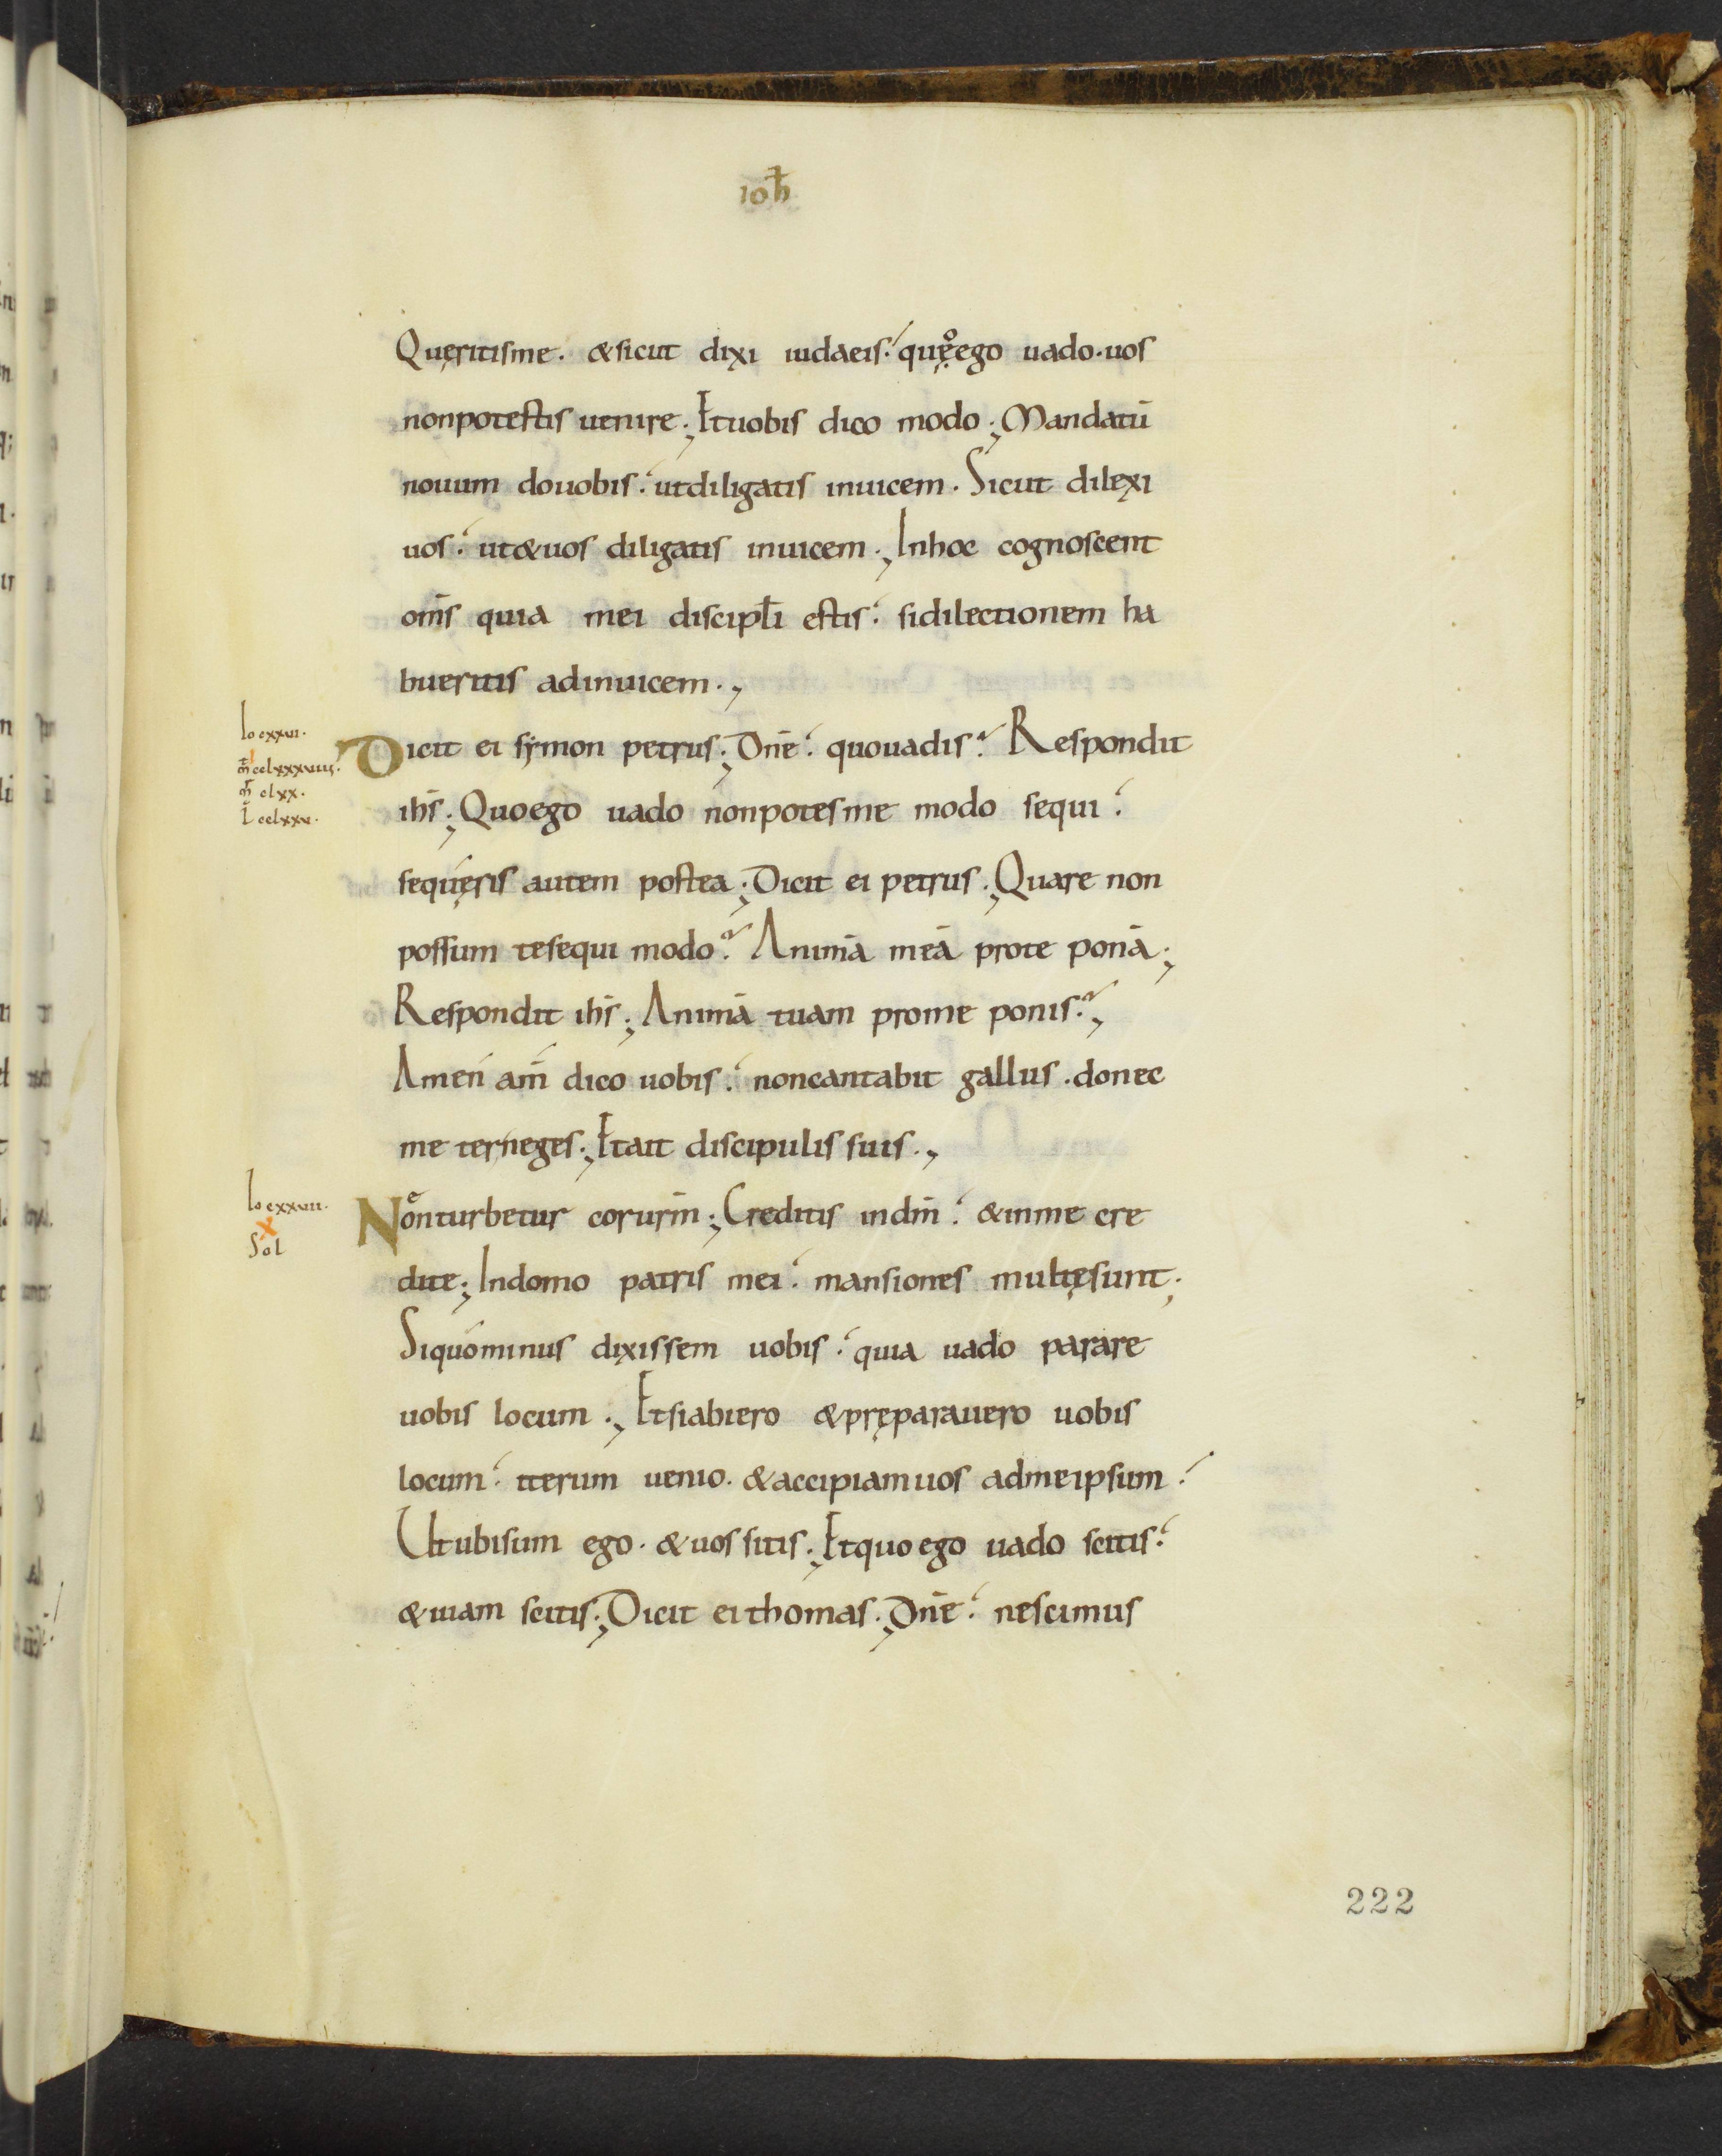 ioħ
Queritisme. &sicut dixi iudaeis: quęͦego uado. uos
nonpotestis uenire; Etuobis dico modo; Mandatū
nouum douobis: utdiligatis inuicem. Sicut dilexi
uos: ut&uos diligatis inuicem; Inhoc cognoscent
om̄s quia mei discipłi estis: sidilectionem ha
bueritis adinuicem.,
Io cxxui.
Dicit ei symon petrus; Dn̄e: quouadis? Respondit
m̄ cclxxxuiiii.
m̄ clxx.
L cclxxu.
ihs̄; Quoego uado nonpotesme modo sequi:
sequęris autem postea; Dicit ei petrus; Quare non
possum tesequi modo? Animā meā prote ponā;
Respondit ihs̄; Animā tuam prome ponis?,
Amen am̄ dico uobis: noncantabit gallus. donec
me terneges; Etait discipulis suis.,
Io cxxuii.
x
Sol
Nonturbetur corurm̄; Creditis indm̄: &inme cre
dite; Indomo patris mei: mansiones multęsunt;
Siquominus dixissem uobis: quia uado parare
uobis locum., Etsiabiero &pręparauero uobis
locum: iterum uenio. &accipiamuos admeipsum:
Utubisum ego. &uos sitis; Etquo ego uado scitis:
&uiam scitis; Dicit ei thomas; Dn̄e: nescimus
222